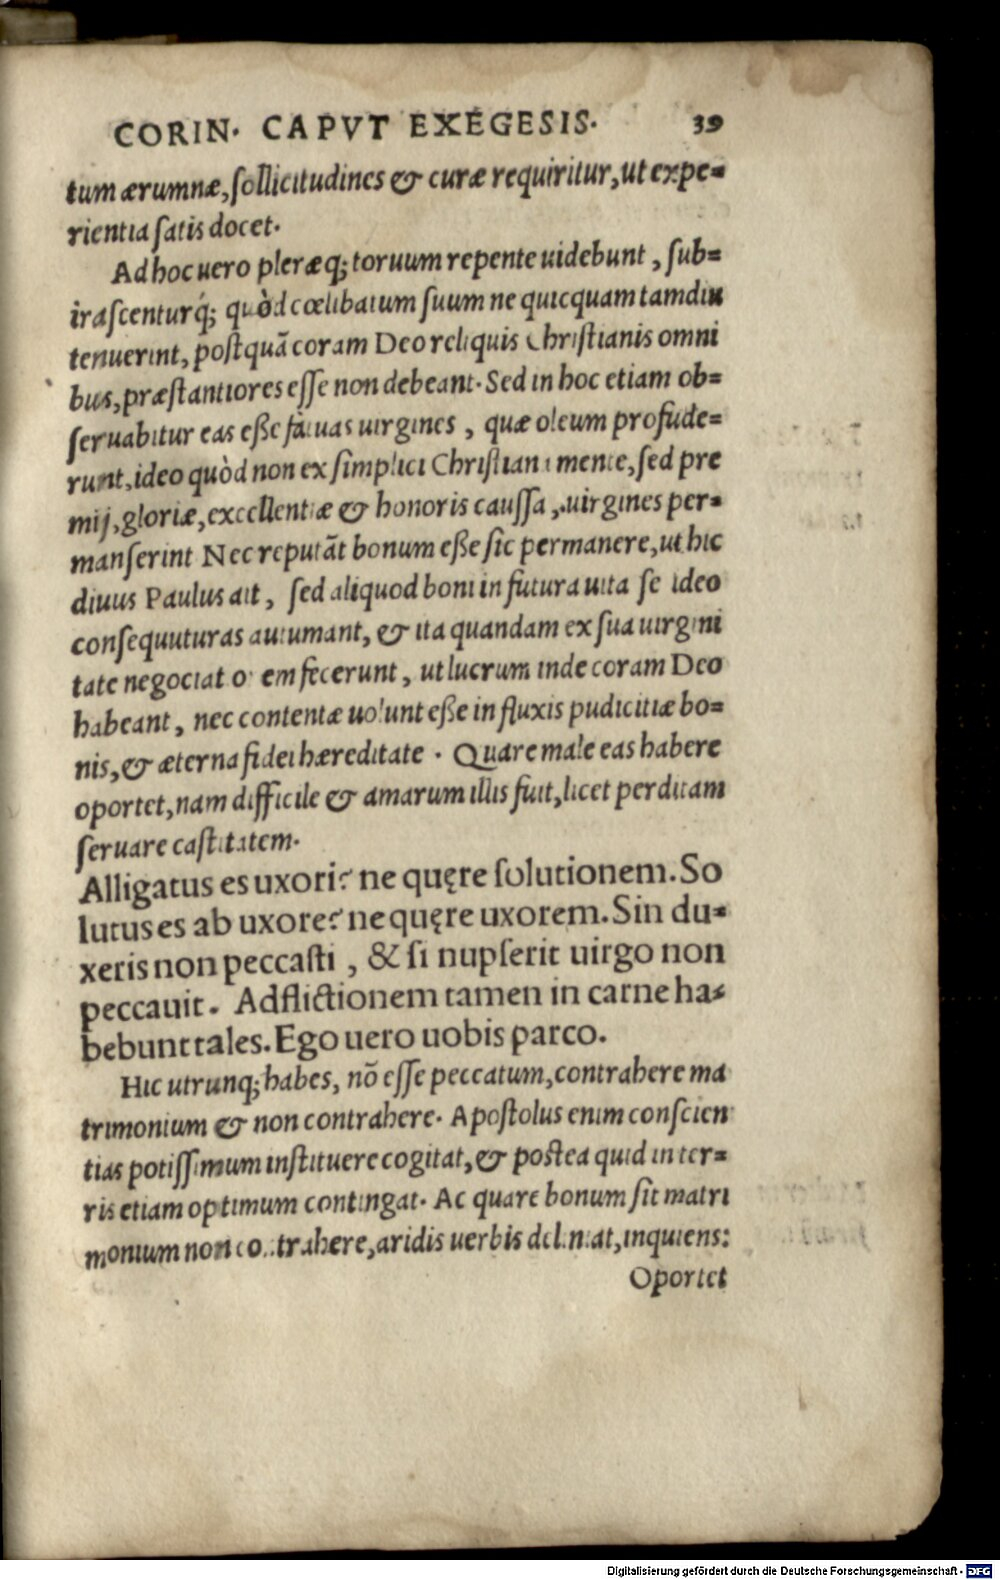 CORIN. CAPVT EXEGESIS. 39
tum ærumnæ, ſollicitudines & curæ requiritur, ut expe=
rientia ſatis docet.
Ad hoc uero pleræq; toruum repente uidebunt, ſub=
iraſcenturq́; quòd cœlibatum ſuum ne quicquam tamdiu
tenuerint, poſtquã coram Deo reliquis Chriſtianis omni
bus, præſtantiores eſſe non debeant. Sed in hoc etiam ob=
ſeruabitur eas eße fatuas uirgines, quæ oleum profude=
runt, ideo quòd non ex ſimplici Chriſtiani mente, ſed præ
mij, gloriæ, excellentiæ & honoris cauſſa, uirgines per=
manſerint Nec reputãt bonum eße ſic permanere, ut hic
diuus Paulus ait, ſed aliquod boni in futura uita ſe ideo
conſequuturas autumant, & ita quandam ex ſua uirgini
tate negociationem fecerunt, ut lucrum inde coram Deo
habeant, nec contentæ uolunt eße in fluxis pudicitiæ bo=
nis, & æterna fidei hæreditate. Quare male eas habere
oportet, nam difficile & amarum illis fuit, licet perditam
ſeruare caſtitatem.
Alligatus es uxori? ne quęre ſolutionem. So
lutus es ab uxore? ne quęre uxorem. Sin du=
xeris non peccaſti, & ſi nupſerit uirgo non
peccauit. Adflictionem tamen in carne ha=
bebunt tales. Ego uero uobis parco.
Hic utrunq; habes, nõ eſſe peccatum, contrahere ma
trimonium & non contrahere. Apoſtolus enim conſcien
tias potiſſimum inſtituere cogitat, & poſtea quid in ter=
ris etiam optimum contingat. Ac quare bonum ſit matri
monium non contrahere, aridis uerbis delineat, inquiens:
Oportet
Digitalisierung gefördert durch die Deutsche Forschungsgemeinschaft - DFG